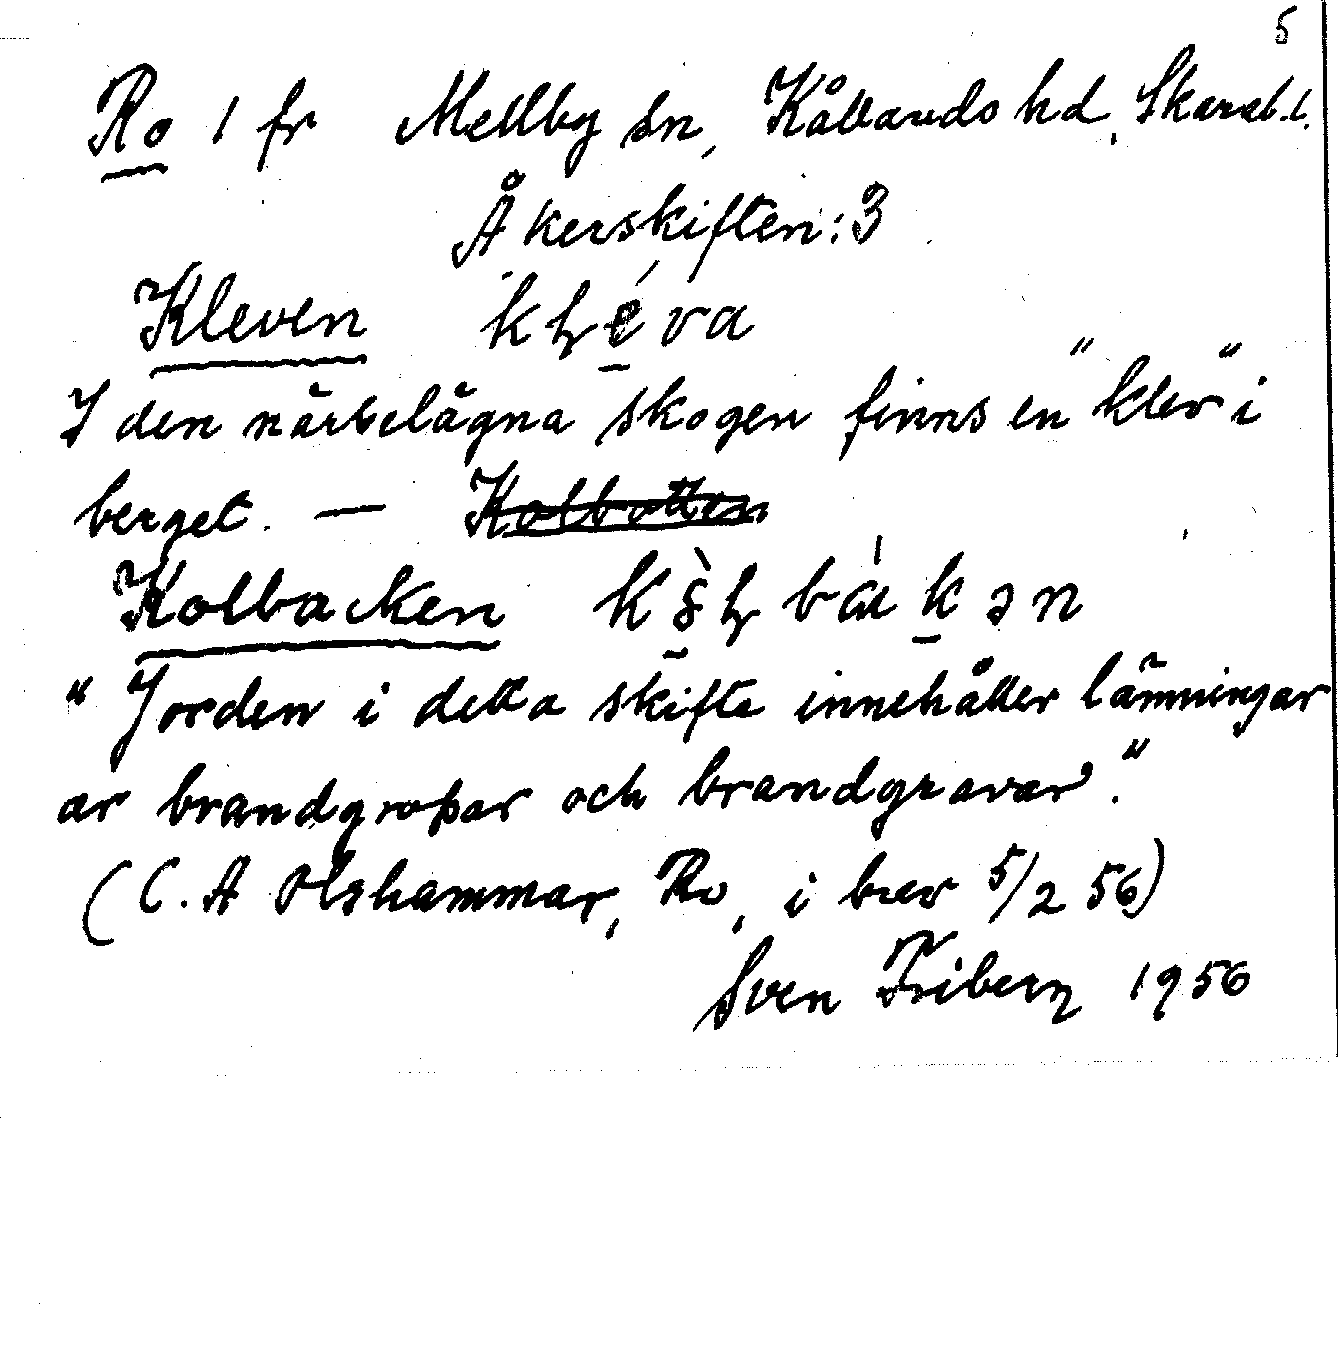 5
Ro 1 fr Mellby sn, Kållands hd, Skarab. l.
Åkerskiften: 3
Kleven kɫéva
I den närbelägna skogen finns en "klev" i
berget. — Kolbotten
Kolbacken
"Jorden i detta skifte innehåller lämningar
av brandgropar och brandgravar."
(C. A Olshammar, Ro, i brev 5/2 56)
Sven Friberg 1956